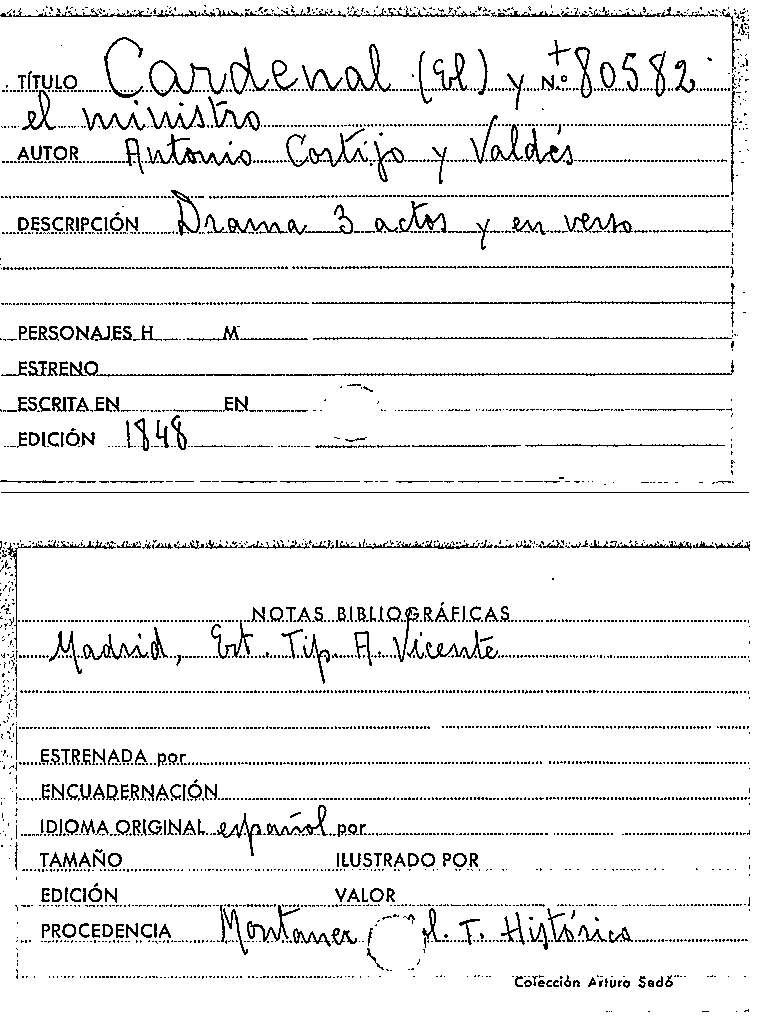 TÍTULO Cardenal (El) y N.º 80582
el ministro
AUTOR Antonio Cortijo y Valdés
DESCRIPCIÓN Drama 3 actos y en verso
PERSONAJES H M
ESTRENO
ESCRITA EN EN
EDICIÓN 1848
NOTAS BIBLIOGRÁFICAS
Madrid, Est. Tip. A. Vicente
ESTRENADA por
ENCUADERNACIÓN
IDIOMA ORIGINAL español por
TAMAÑO ILUSTRADO POR
EDICIÓN VALOR
PROCEDENCIA Montaner T. Histórico
Colección Arturo Sedó